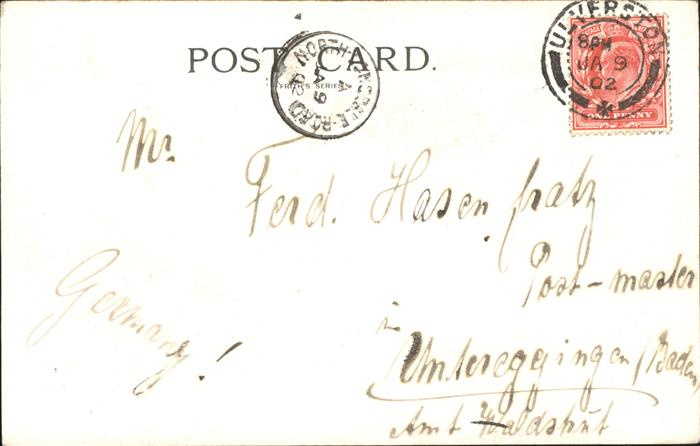 POST CARD.
FRITH'S SERIES
NORTH LONSDALE-ROAD
A
JA 9
02
ULVERSTON
8 PM
JA 9
02
ONE PENNY
Mr.
Ferd. Hasenfratz
Post-master
in
Untereggingen/Baden
Amt Waldshut
Germany!